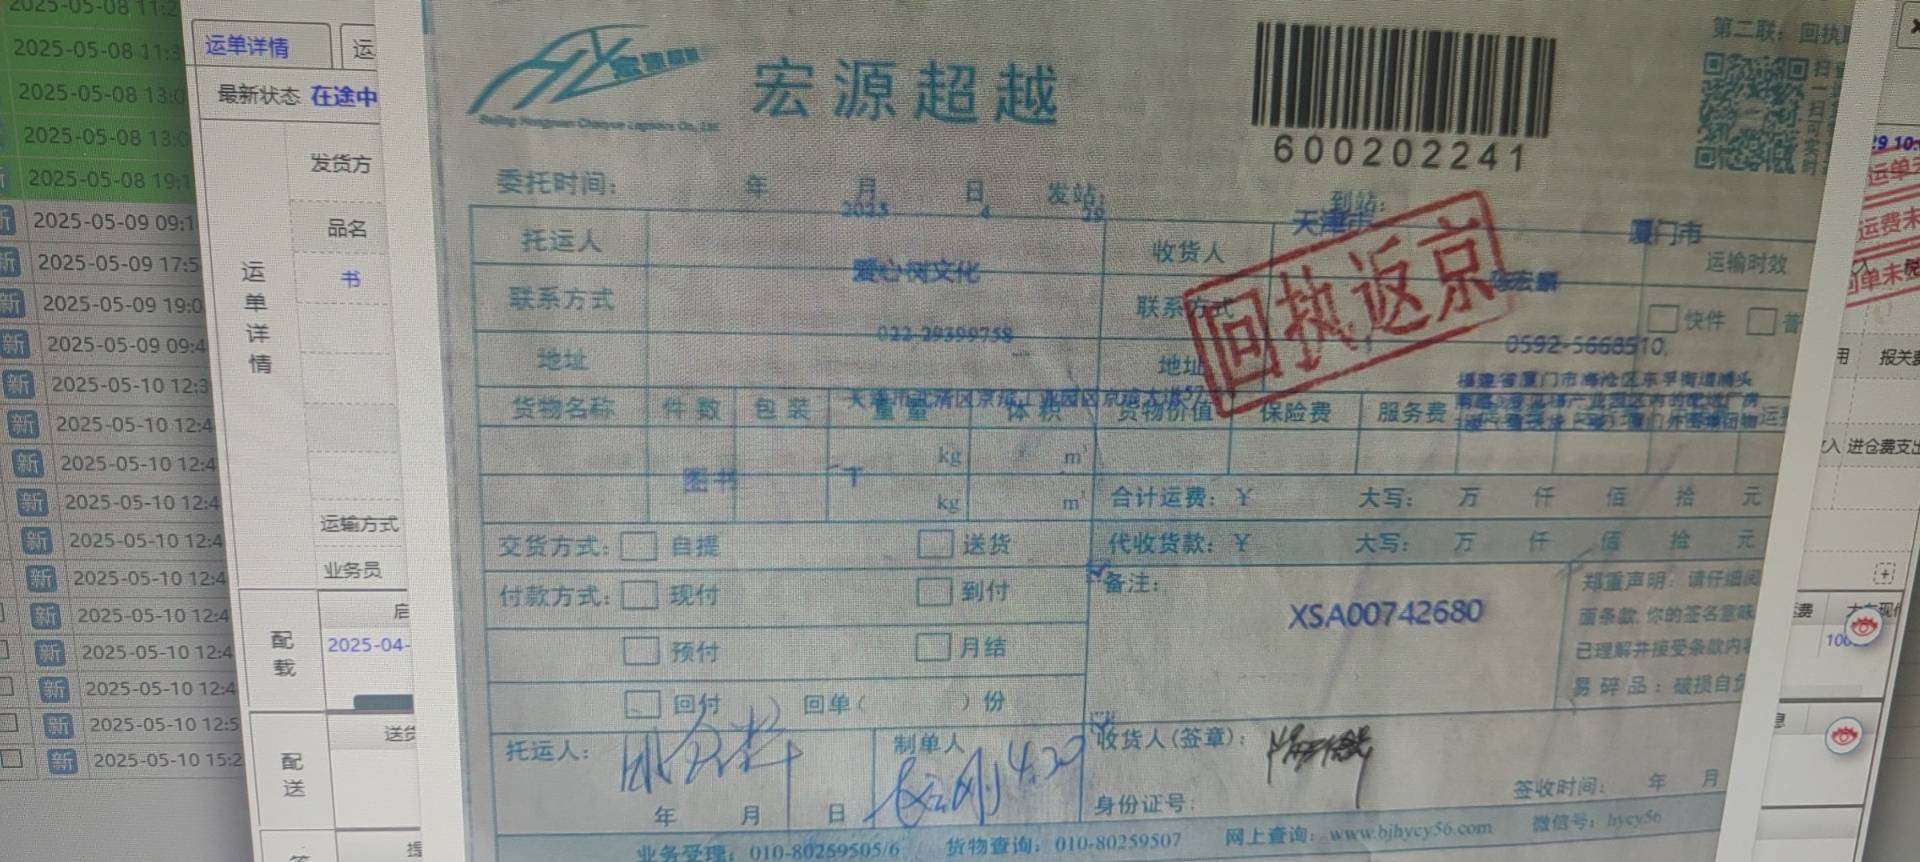 2025-05-08 11:2
2025-05-08 11:3
2025-05-08 13:0
2025-05-08 13:0
2025-05-08 19:1
新 2025-05-09 09:1
新 2025-05-09 17:5
新 2025-05-09 19:0
新 2025-05-09 09:4
新 2025-05-10 12:3
新 2025-05-10 12:4
新 2025-05-10 12:4
新 2025-05-10 12:4
新 2025-05-10 12:4
新 2025-05-10 12:4
新 2025-05-10 12:4
新 2025-05-10 12:4
新 2025-05-10 12:4
新 2025-05-10 12:5
新 2025-05-10 15:2
运单详情 运
最新状态 在途中
运单详情
发货方
品名
书
运输方式
业务员
配载
启
2025-04-
配送
送货
提
宏源超越
600202241
第二联：回执联
扫一扫可
委托时间： 年 月 日 发站： 到站：
2025 4 29 天津市 厦门市
托运人 爱心树文化 收货人 运输时效
联系方式 022-29399758 联系方式 0592-5668510,
快件 普
地址 地址
回执返京
货物名称 件数 包装 重量 体积 货物价值 保险费 服务费
kg m³
图书 1
kg m³
合计运费：￥ 大写： 万 仟 佰 拾 元
交货方式： 自提 送货 代收货款：￥ 大写： 万 仟 佰 拾 元
付款方式： 现付 到付 备注：
XSA00742680
预付 月结
回付 回单（ ）份
郑重声明：请仔细阅
面条款，你的签名意味
已理解并接受条款内容
易碎品：破损自负
托运人： 制单人 4.30 收货人(签章)：
年 月 日 身份证号： 签收时间： 年 月
业务受理：010-80259505/6 货物查询：010-80259507 网上查询：www.bjhycy56.com 微信号：hycy56
29 10:
运单未
运费未
回单未
用 报关费
入 进仓费支出
运费
100
息